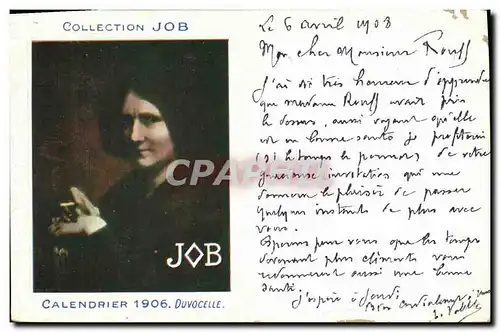 COLLECTION JOB
JOB
CALENDRIER 1906. DUVOCELLE.
Le 6 avril 1908
Mon cher Monsieur Rouff
J'ai été très heureux d'apprendre
que madame Rouff avait pris
le dessus, aussi voyant qu'elle
est en bonne santé je profiterai
(si le temps le permet) de votre
gracieuse invitation qui me
donnera le plaisir de passer
quelques instants de plus avec
vous.
Espérons pour vous que les temps
devenant plus cléments vous
redonneront aussi une bonne
santé.
J'espère à Jeudi
CPARAMA